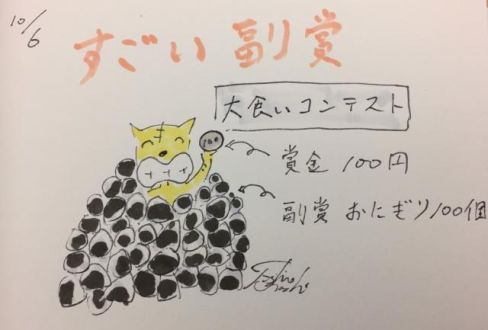 10/6
すごい副賞
大食いコンテスト
100
賞金 100円
副賞 おにぎり100個